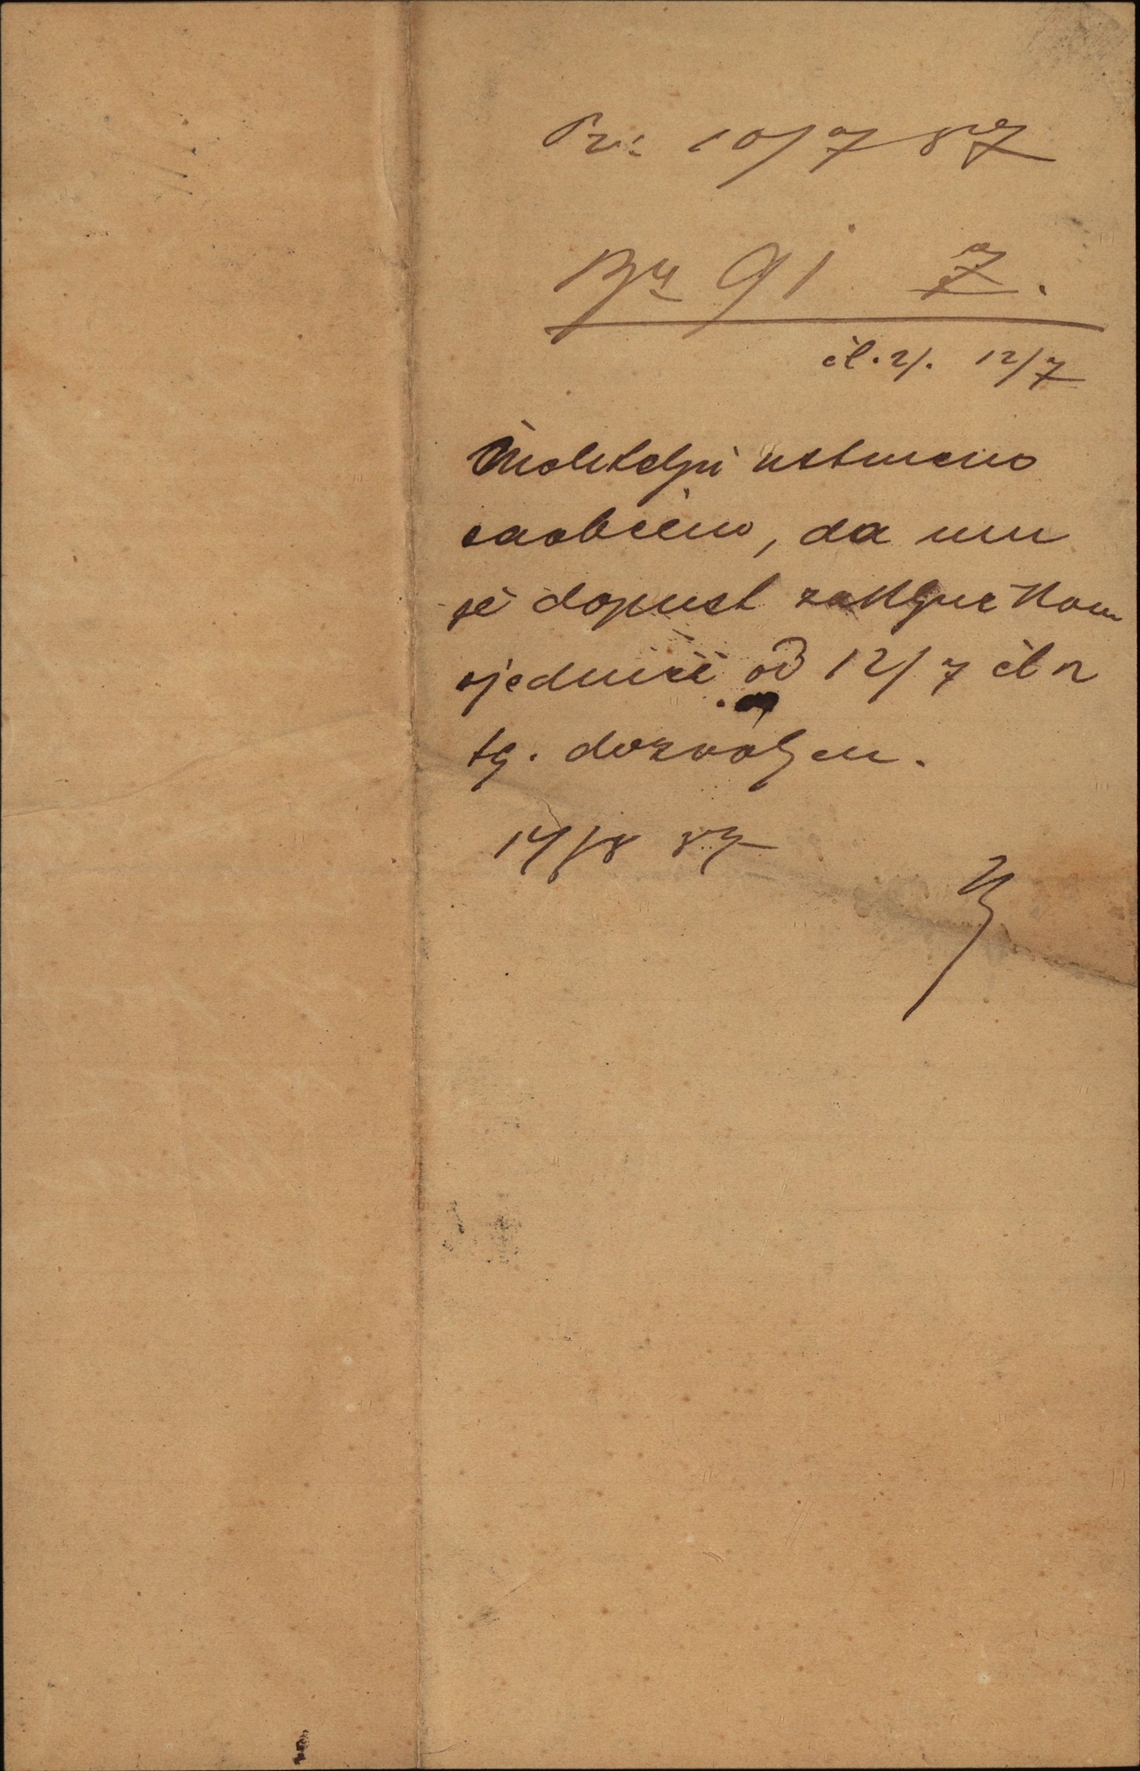 Prs 10/7 87
Br 91 7.
čl. 2/. 12/7
Molitelju ustmeno
saobćeno, da mu
je dopust zaključkom
sjednice od 12/7 čl 2
tg. dozvoljen.
14/8 87